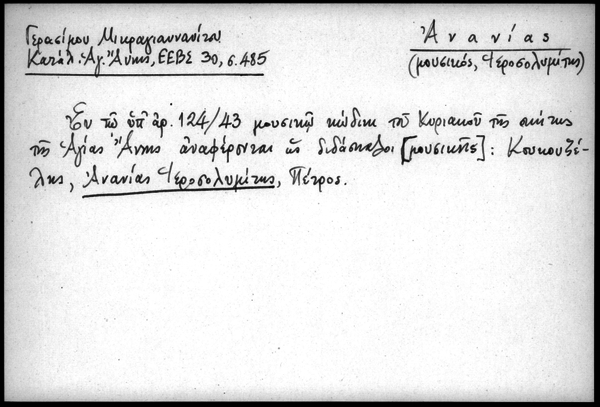 Γερασίμου Μικραγιαννανίτου
Κατάλ. Ἁγ. Ἄννης, ΕΕΒΣ 30, σ. 485
Ἀνανίας
(μουσικός, Ἱεροσολυμίτης)
Ἐν τῷ ὑπ' ἀρ. 124/43 μουσικῷ κώδικι τοῦ Κυριακοῦ τῆς σκήτης
τῆς Ἁγίας Ἄννης ἀναφέρονται ὡς διδάσκαλοι [μουσικῆς]: Κουκουζέ-
λης, Ἀνανίας Ἱεροσολυμίτης, Πέτρος.